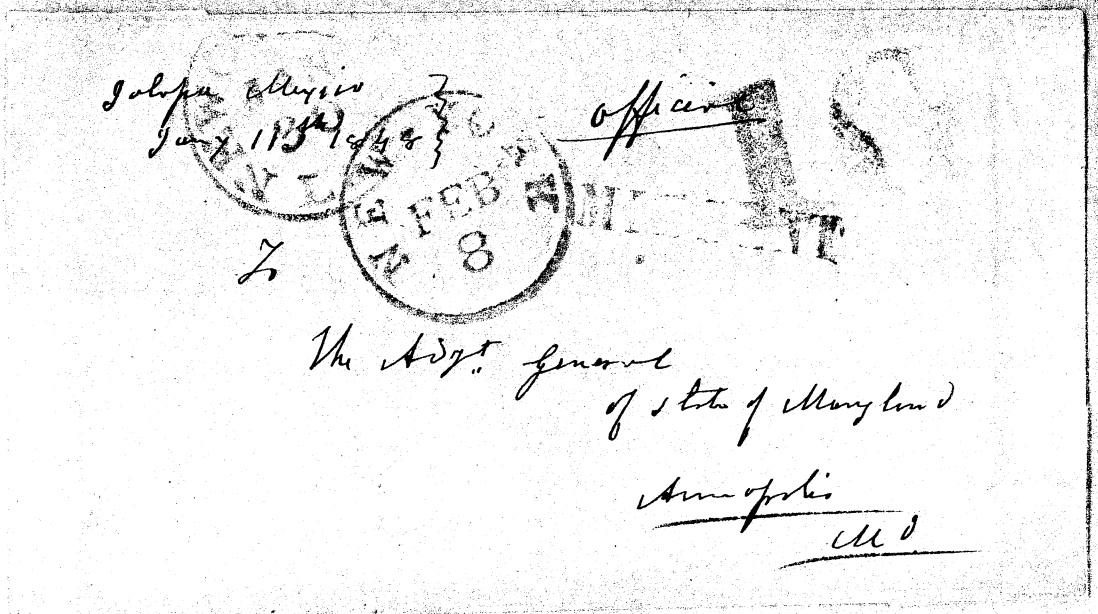 Jalapa Mexico
Jany 1848
official
NEW
FEB
8
To
The Adjt General
of State of Maryland
Annapolis
Md